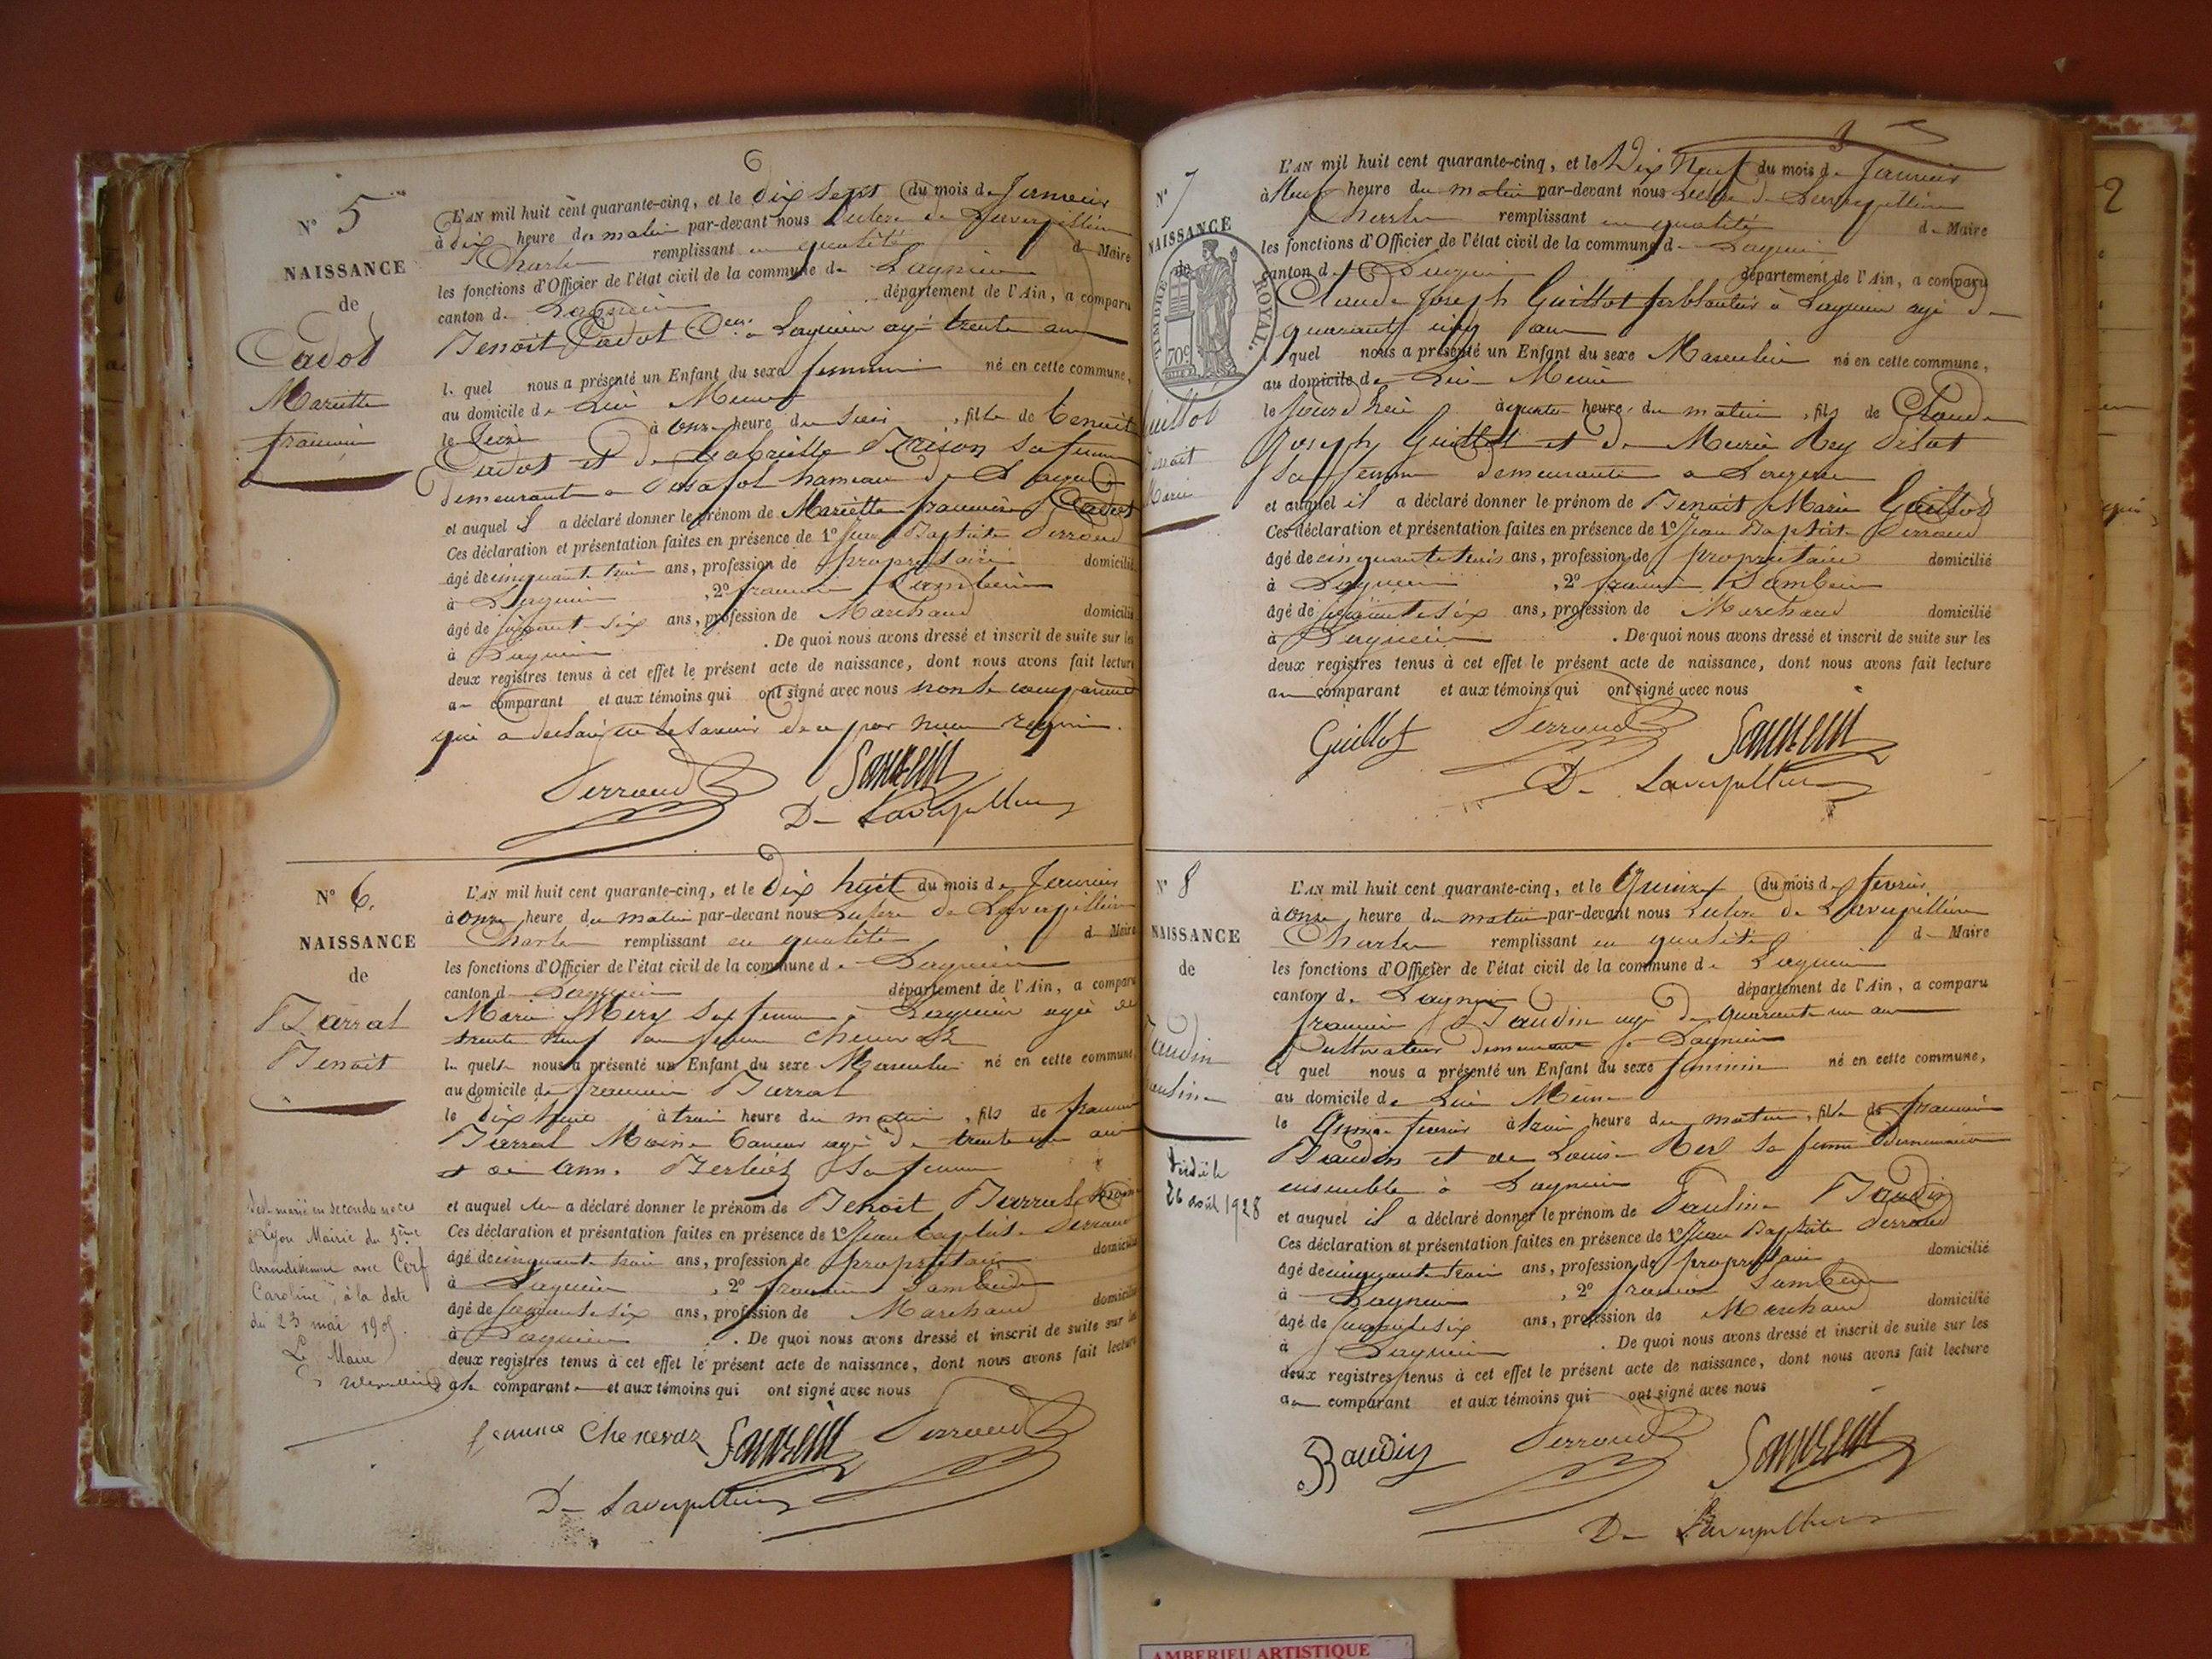 6
N° 5
NAISSANCE
de
Cadot
Mariette
L'AN mil huit cent quarante-cinq, et le Dix Sept du mois de Janvier
à dix heure du matin par-devant nous de Laverpillière
Charles remplissant en qualité de Maire
les fonctions d'Officier de l'état civil de la commune de Lagnieu
canton de Lagnieu département de l'Ain, a comparu
Benoît Cadot à Lagnieu agé trente ans
le quel nous a présenté un Enfant du sexe feminin né en cette commune,
au domicile de Lui Meme
le à onze heure du soir, fille de Benoit
Cadot et de Gabrielle sa femme
demeurant a hameau de Lagnieu
et auquel il a déclaré donner le prénom de Mariette Cadot
Ces déclaration et présentation faites en présence de 1° Jean Baptiste Perroud
âgé de cinquante trois ans, profession de propriétaire domicilié
à Lagnieu, 2°
âgé de six ans, profession de Marchand domicilié
à Lagnieu. De quoi nous avons dressé et inscrit de suite sur les
deux registres tenus à cet effet le présent acte de naissance, dont nous avons fait lecture
au comparant et aux témoins qui ont signé avec nous non le comparant
qui a déclaré ne le savoir de ce par nous requis.
Perroud
De Laverpillière
N° 6.
NAISSANCE
de
Barral
Benoit
L'AN mil huit cent quarante-cinq, et le Dix huit du mois de Janvier
à onze heure du matin par-devant nous de Laverpillière
Charles remplissant en qualité de Maire
les fonctions d'Officier de l'état civil de la commune de Lagnieu
canton de Lagnieu département de l'Ain, a comparu
Marie Mery Sage femme à Lagnieu agée de
trente neuf ans femme
la quelle nous a présenté un Enfant du sexe Masculin né en cette commune,
au domicile de Barral
le Dix huit à trois heure du matin, fils de
Barral agé de trente un ans
et de Anne sa femme
et auquel elle a déclaré donner le prénom de Benoit Barral
Ces déclaration et présentation faites en présence de 1° Jean Baptiste Perroud
âgé de cinquante trois ans, profession de propriétaire domicilié
à Lagnieu, 2°
âgé de six ans, profession de Marchand domicilié
à Lagnieu. De quoi nous avons dressé et inscrit de suite sur les
deux registres tenus à cet effet le présent acte de naissance, dont nous avons fait lecture
à la comparante et aux témoins qui ont signé avec nous
Perroud
De Laverpillière
marié en secondes noces
à Lyon Mairie du 3ème
arrondissement avec Cerf
Caroline, à la date
du 23 mai
Le Maire
N° 7
NAISSANCE
de
TIMBRE ROYAL.
70c
Guillot
Benoit
Marie
L'AN mil huit cent quarante-cinq, et le Dix Neuf du mois de Janvier
à Neuf heure du matin par-devant nous de Laverpillière
Charles remplissant en qualité de Maire
les fonctions d'Officier de l'état civil de la commune de Lagnieu
canton de Lagnieu département de l'Ain, a comparu
Claude Joseph Guillot ferblantier à Lagnieu agé de
quarante cinq ans
le quel nous a présenté un Enfant du sexe Masculin né en cette commune,
au domicile de Lui Meme
le à quatre heure du matin, fils de Claude
Joseph Guillot et de Marie Rey
sa femme demeurante a Lagnieu
et auquel il a déclaré donner le prénom de Benoit Marie Guillot
Ces déclaration et présentation faites en présence de 1° Jean Baptiste Perroud
âgé de cinquante trois ans, profession de propriétaire domicilié
à Lagnieu, 2°
âgé de six ans, profession de Marchand domicilié
à Lagnieu. De quoi nous avons dressé et inscrit de suite sur les
deux registres tenus à cet effet le présent acte de naissance, dont nous avons fait lecture
au comparant et aux témoins qui ont signé avec nous
Guillot Perroud
De Laverpillière
N° 8
NAISSANCE
de
Baudin
Pauline
L'AN mil huit cent quarante-cinq, et le Quinze du mois de fevrier
à onze heure du matin par-devant nous de Laverpillière
Charles remplissant en qualité de Maire
les fonctions d'Officier de l'état civil de la commune de Lagnieu
canton de Lagnieu département de l'Ain, a comparu
Baudin agé de quarante un ans
Cultivateur demeurant à Lagnieu
le quel nous a présenté un Enfant du sexe feminin né en cette commune,
au domicile de Lui Meme
le Quinze fevrier à trois heure du matin, fille de
Baudin et de Louise sa femme
ensemble à Lagnieu
et auquel il a déclaré donner le prénom de Pauline Baudin
Ces déclaration et présentation faites en présence de 1° Jean Baptiste Perroud
âgé de cinquante trois ans, profession de propriétaire domicilié
à Lagnieu, 2°
âgé de six ans, profession de Marchand domicilié
à Lagnieu. De quoi nous avons dressé et inscrit de suite sur les
deux registres tenus à cet effet le présent acte de naissance, dont nous avons fait lecture
au comparant et aux témoins qui ont signé avec nous
Baudin Perroud
De Laverpillière
26 août 1928
2
AMBERIEU ARTISTIQUE